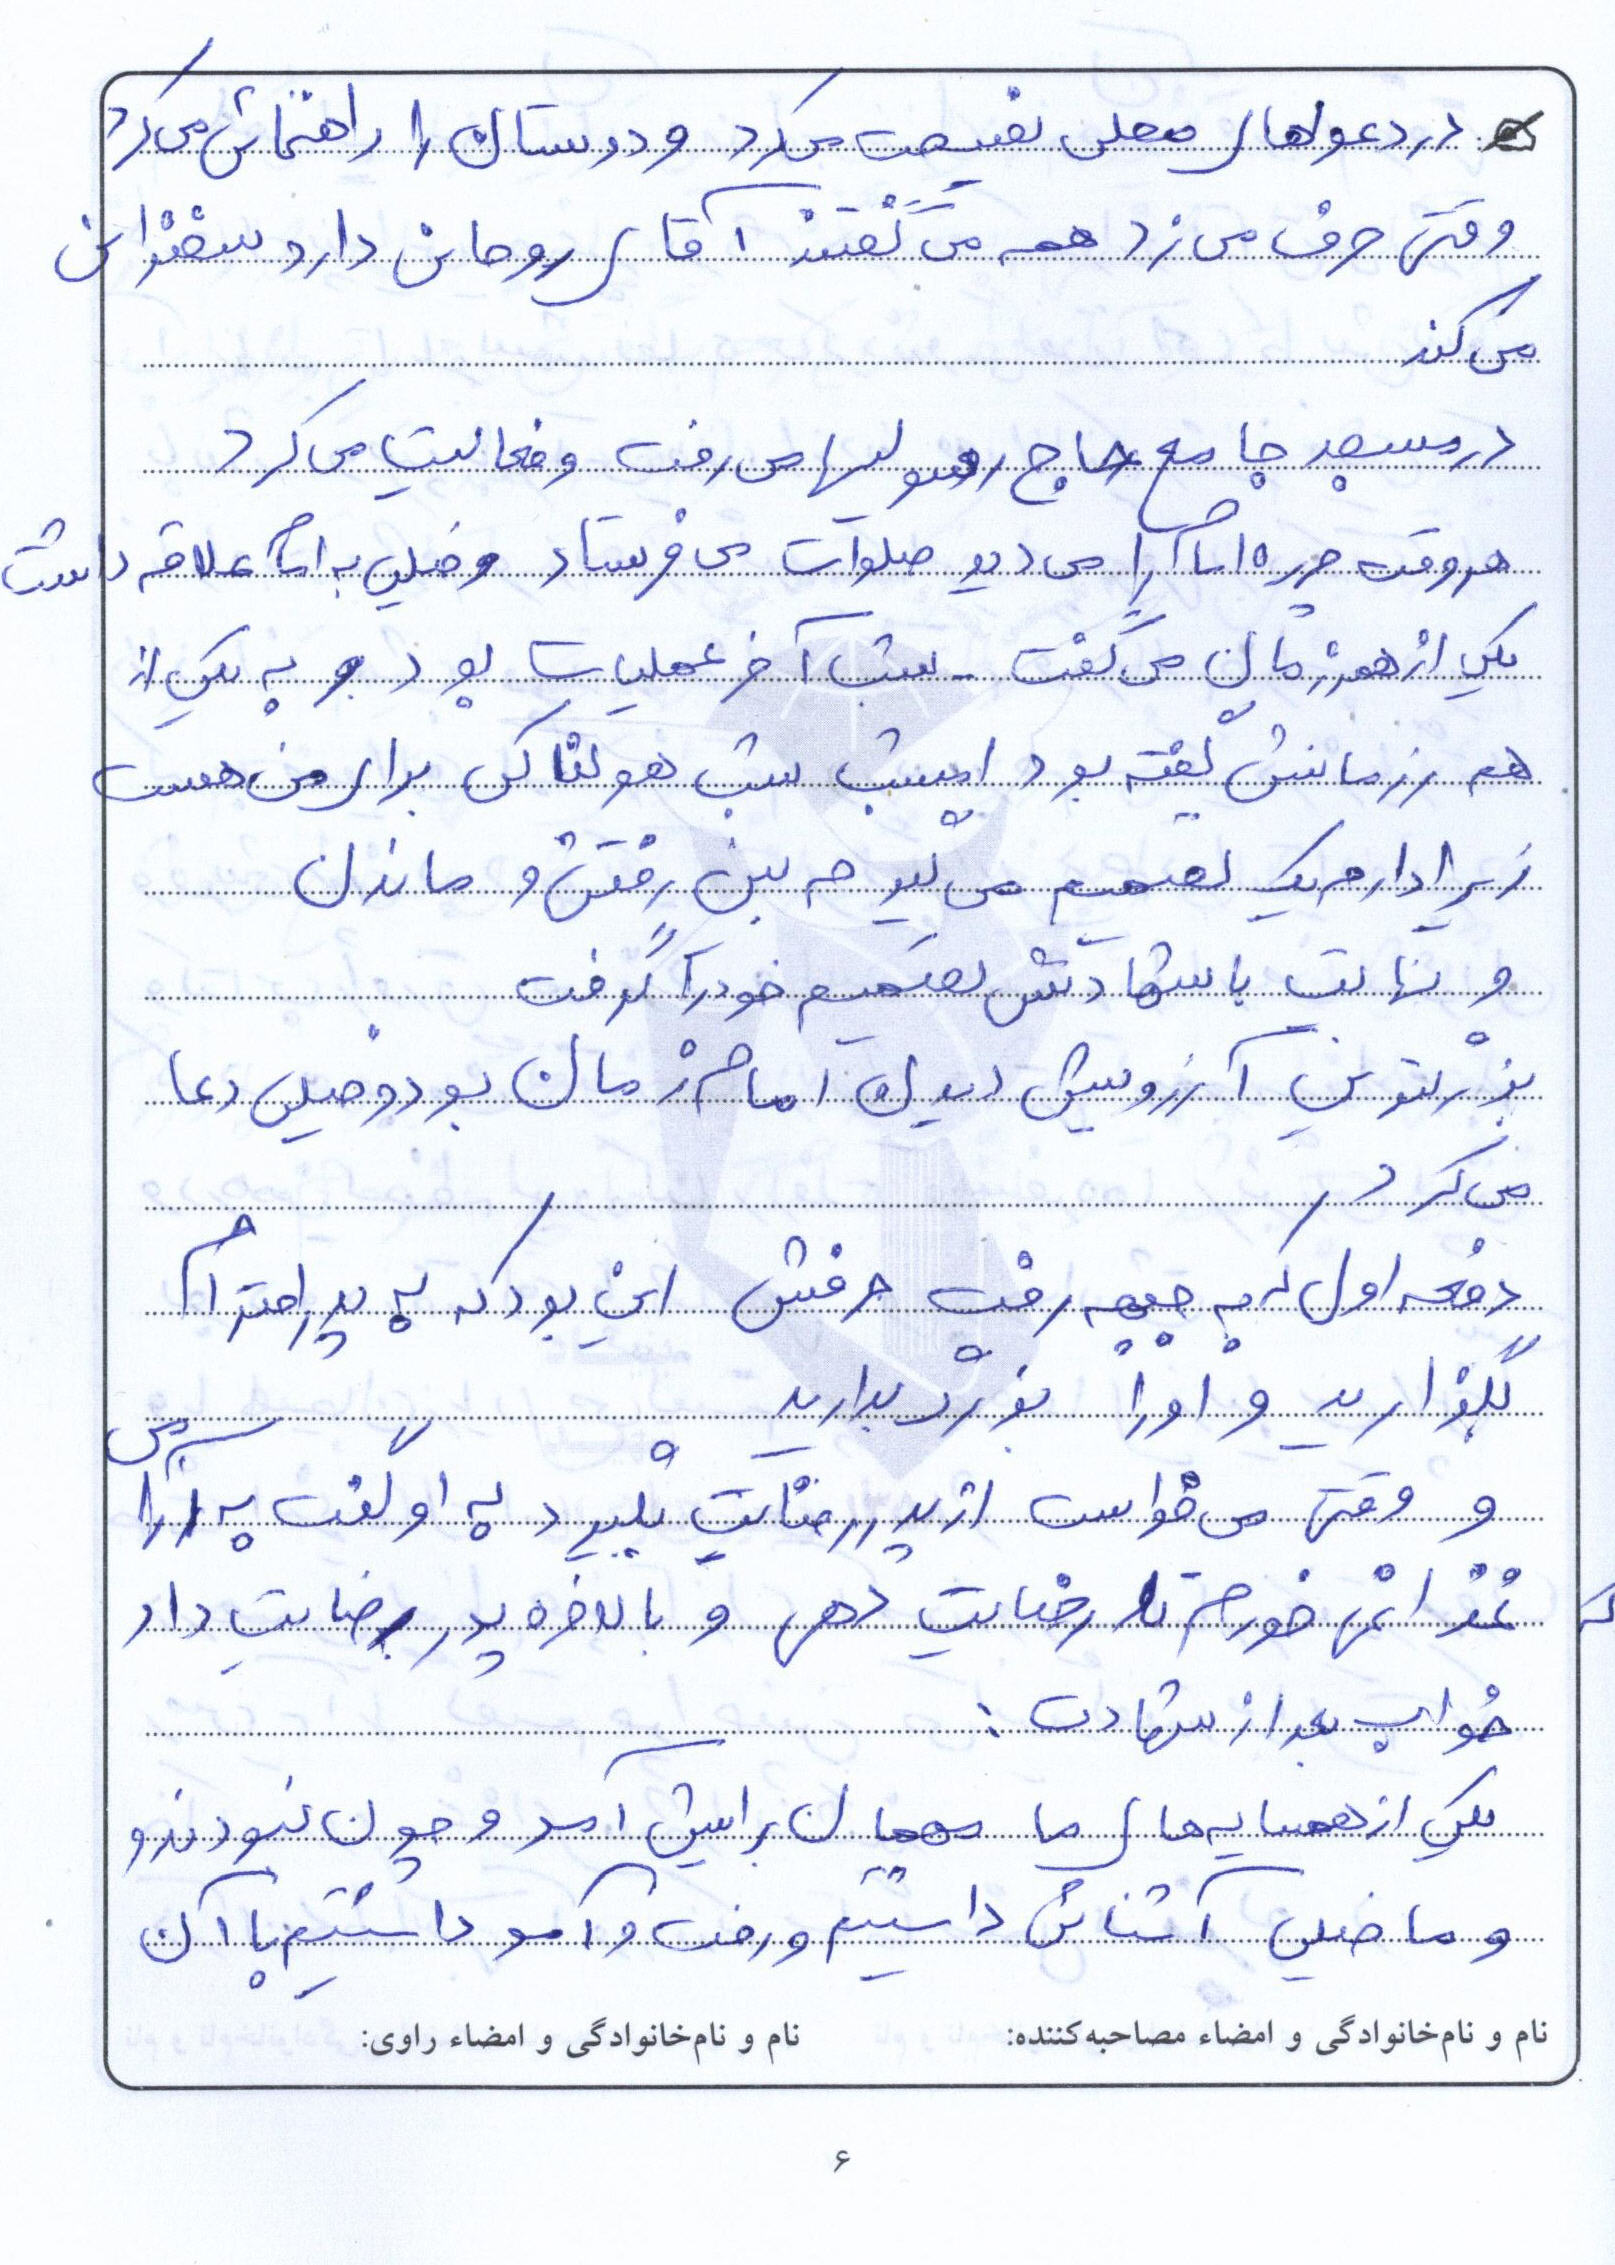 در دعواهای محلی نصیحت می‌کرد و دوستان را راهنمائی می‌کرد
وقتی حرف می‌زد همه می گفتند آقای روحانی دارد سخنرانی
می‌کند
در مسجد جامع حاج رسولیها می‌رفت و فعالیت می‌کرد
هر وقت چهره امام را می‌دید صلوات می‌فرستاد و خیلی به امام علاقه داشت
یکی از همرزمان می‌گفت - شب آخر عملیات بود و به یکی از
هم رزمانش گفته بود امشب شب هولناکی برای من هست
زیرا دارم یک تصمیم می‌گیرم بین رفتن و ماندن
و نهایت با شهادتش تصمیم خود را گرفت
بزرگترین آرزویش دیدن امام زمان بود و خیلی دعا
می‌کرد
دفعه اول که به جبهه رفت حرفش این بود که به پدر احترام
بگذارید و او را بزرگ بدارید
و وقتی می‌خواست از پدر رضایت بگیرد به او گفت به
خورم تا رضایت دهی و بالاخره پدر رضایت داد
خواب بعد از شهادت :
یکی از همسایه‌های ما مهمان برایش آمد و چون نبودند و
و ما خیلی آشنائی داشتیم و رفت و آمد داشتیم با آن
نام و نام‌خانوادگی و امضاء مصاحبه‌کننده: نام و نام‌خانوادگی و امضاء راوی:
۶